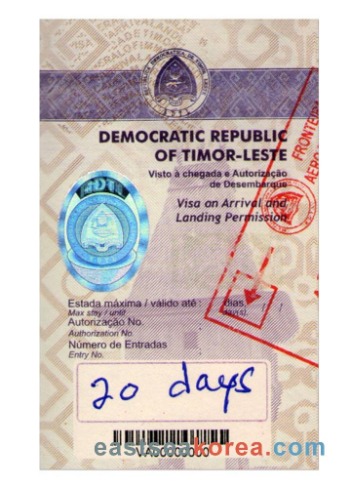 DEMOCRATIC REPUBLIC
OF TIMOR-LESTE
Visto à chegada e Autorização
de Desembarque
Visa on Arrival and
Landing Permission
FRONTEIRA
AERO
Estada máxima / válido até : dias
Max stay / until day(s)
Autorização No.
Authorization No.
Número de Entradas
Entry No.
20 days
VA00000000
eastseakorea.com